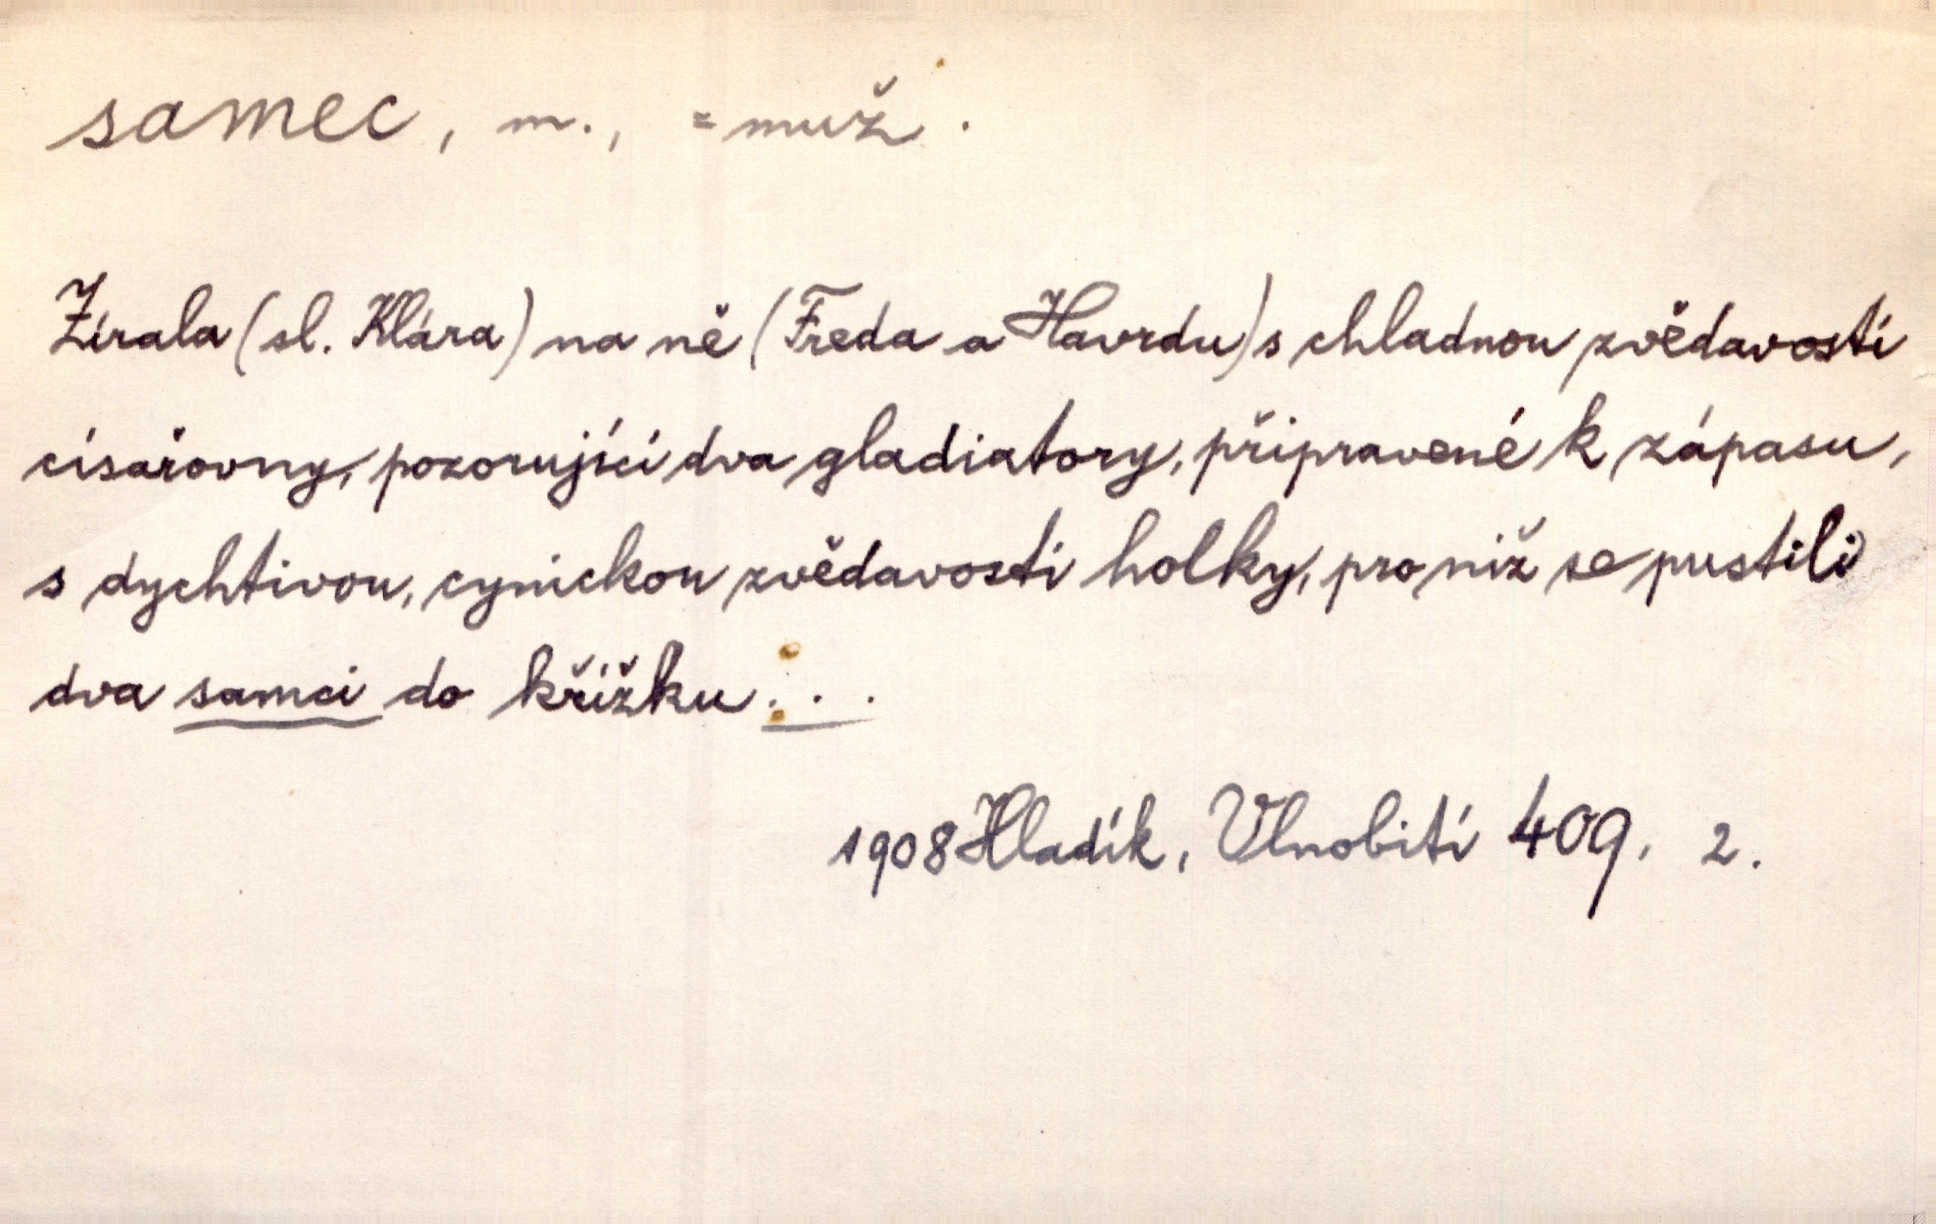 samec, m., = muž.
Zírala (sl. Klára) na ně (Freda a Havrdu) s chladnou zvědavostí
císařovny, pozorující dva gladiatory, připravené k zápasu,
s dychtivou, cynickou zvědavostí holky, pro niž se pustili
dva samci do křížku...
1908 Hladík, Vlnobití 409. 2.